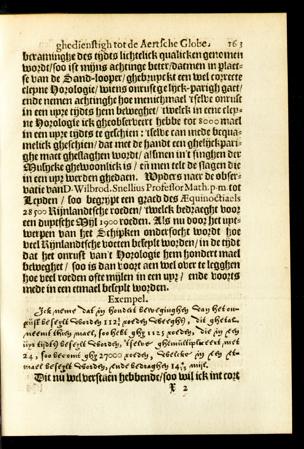 ghedienstigh tot de Aertsche Globe. 163
beraminghe des tijdts lichtelick qualicken genomen
wordt/soo ist mijns achtinge beter/datmen in plaet-
se van de Sand-looper/ ghebruyckt een wel correcte
cleyne Horologie/ wiens onrust gelijck-parigh gaet/
ende nemen achtinghe hoe menichmael 'tselve onrust
in een upre tijdts hem beweghet/ 'twelck in eene cley-
ne Horologie ick gheobserveert hebbe tot 8000 mael
in een upre tijdts te geschien: 'tselve can mede bequa-
melick gheschien/ dat met de handt een ghelijck-pari-
ghe maet gheslaghen wordt/ alsmen in't singhen der
Musijcke ghewoonlick is / en men tel de slagen die
in een upr werden ghedaen. Wyders naer de obser-
vatie van D. Wilbrod. Snellius Professor Math. p. m. tot
Leyden / soo begrijpt een graed des Æquinoctiaels
28500 Rijnlandtsche roeden/ 'twelck bedraeght voor
een duytsche Mijl 1900 roeden. Als nu door het upt-
werpen van het Schipken ondersocht wordt hoe
veel Rijnlandtsche voeten beseylt worden/ in de tijdt
dat het onrust van't Horologie hem hondert mael
beweghet / soo is dan voort aen wel over te legghen
hoe veel roeden oste mijlen in een upr / ende voorts
mede in een etmael beseylt worden.
Exempel.
Ick neme dat in hondert beweginghen van het on-
rust beseylt worden 112½ roeden weeghs, dit ghetal
neemt thien mael, soo hebt ghy 1125 roeden, die in een
uyr tijdts beseylt worden, 'tselve ghemultipliceert met
24, soo becomt ghy 27000 roeden, welcke in een et-
mael beseylt worden, ende bedraghen 14 mijl.
Dit nu wel verstaen hebbende/ soo wil ick int cort
X 2